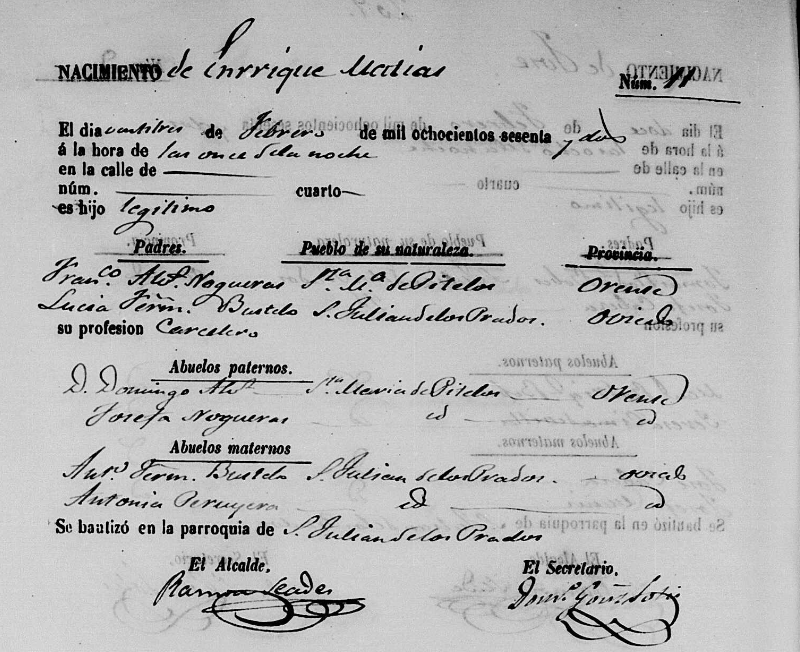 NACIMIENTO de Enrrique Matias
Núm. 11
El dia ventitres de Febrero de mil ochocientos sesenta y dos
á la hora de las once de la noche
en la calle de
núm. cuarto
es hijo legitimo
Padres. Pueblo de su naturaleza. Provincia.
Fran.co Alv.z Nogueras S.ta M.a de Pitelos Orense
Lucia Férn. Bustelo S. Julian de los Prados. Oviedo
su profesion Carcelero
Abuelos paternos.
D. Domingo Alv.z S.ta Maria de Pitelos Orense
Josefa Nogueras id id
Abuelos maternos
Ant.o Férn. Bustelo S. Julian de los Prados. Oviedo
Antonia Peruyera id id
Se bautizó en la parroquia de S. Julian de los Prados
El Alcalde. El Secretario.
Ramon